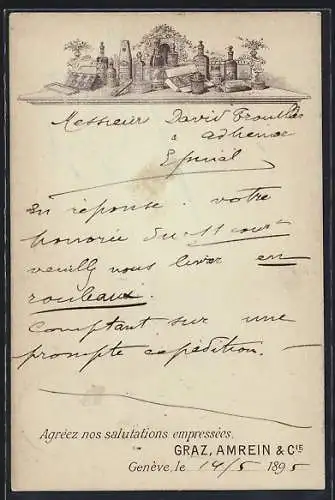 Messieurs David Trouillas
&
Adhemar
Epinal
En réponse . votre
honorée du 11 court
veuillz nous livrer en
rouleaux.
Comptant sur une
prompte expédition.
Agréez nos salutations empressées.
GRAZ, AMREIN & CIE
Genève, le 14/5 1895